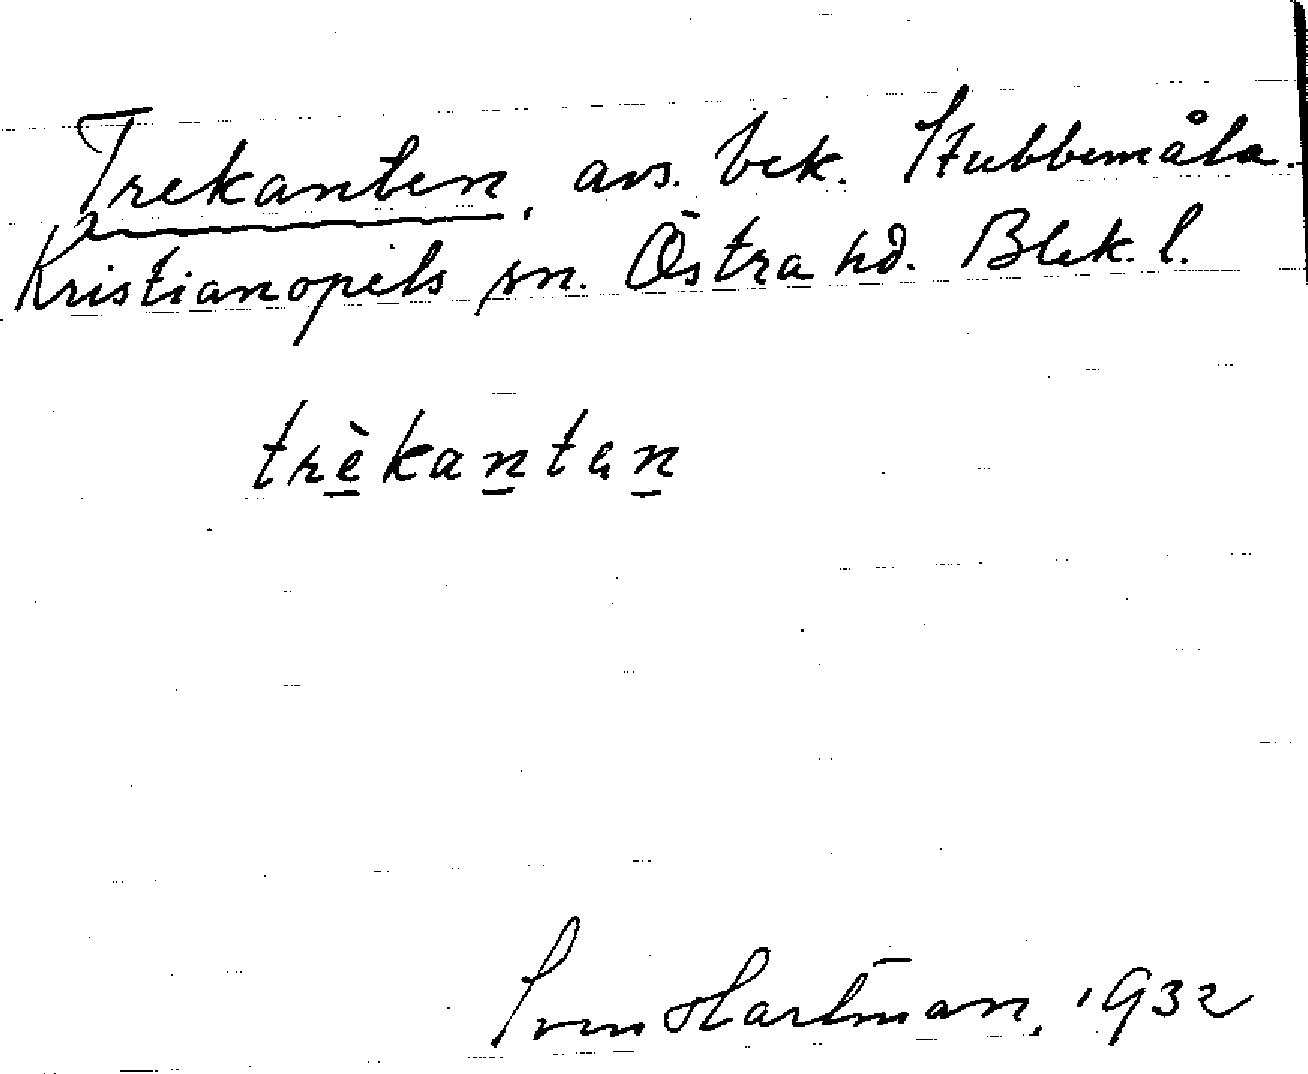 Trekanten, avs. bek. Stubbemåla.
Kristianopels sn. Östra hd. Blek. l.
trèkantan
Sven Hartman, 1932